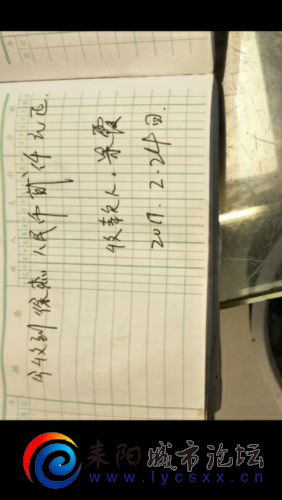 今收到徐 人民币贰仟元正.
收款人. 梁霞
2017. 2. 24日.
耒阳城市论坛
www.lycsxx.cn